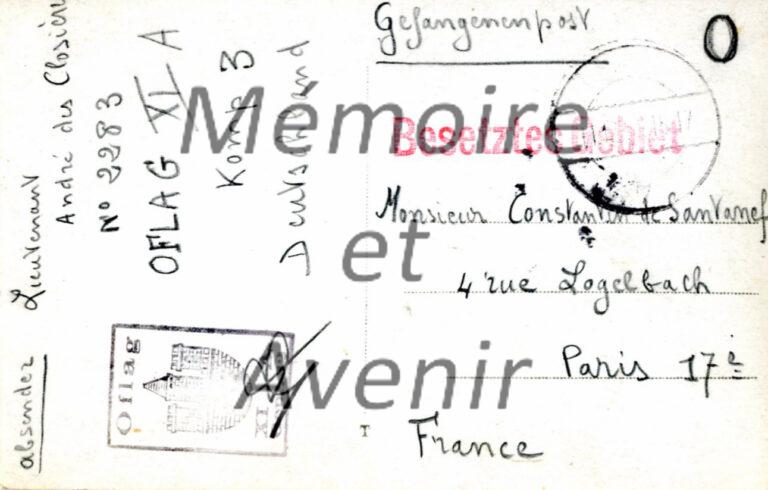 absender
Lieutenant
André des Closiere
N° 2283
OFLAG XI A
Komp 3
Deutschland
Oflag
Gefangenenpost
O
Besetztes Gebiet
Monsieur Constantin de Santanef
4 rue Logelbach
Paris 17e
T
France
Mémoire
et
Avenir